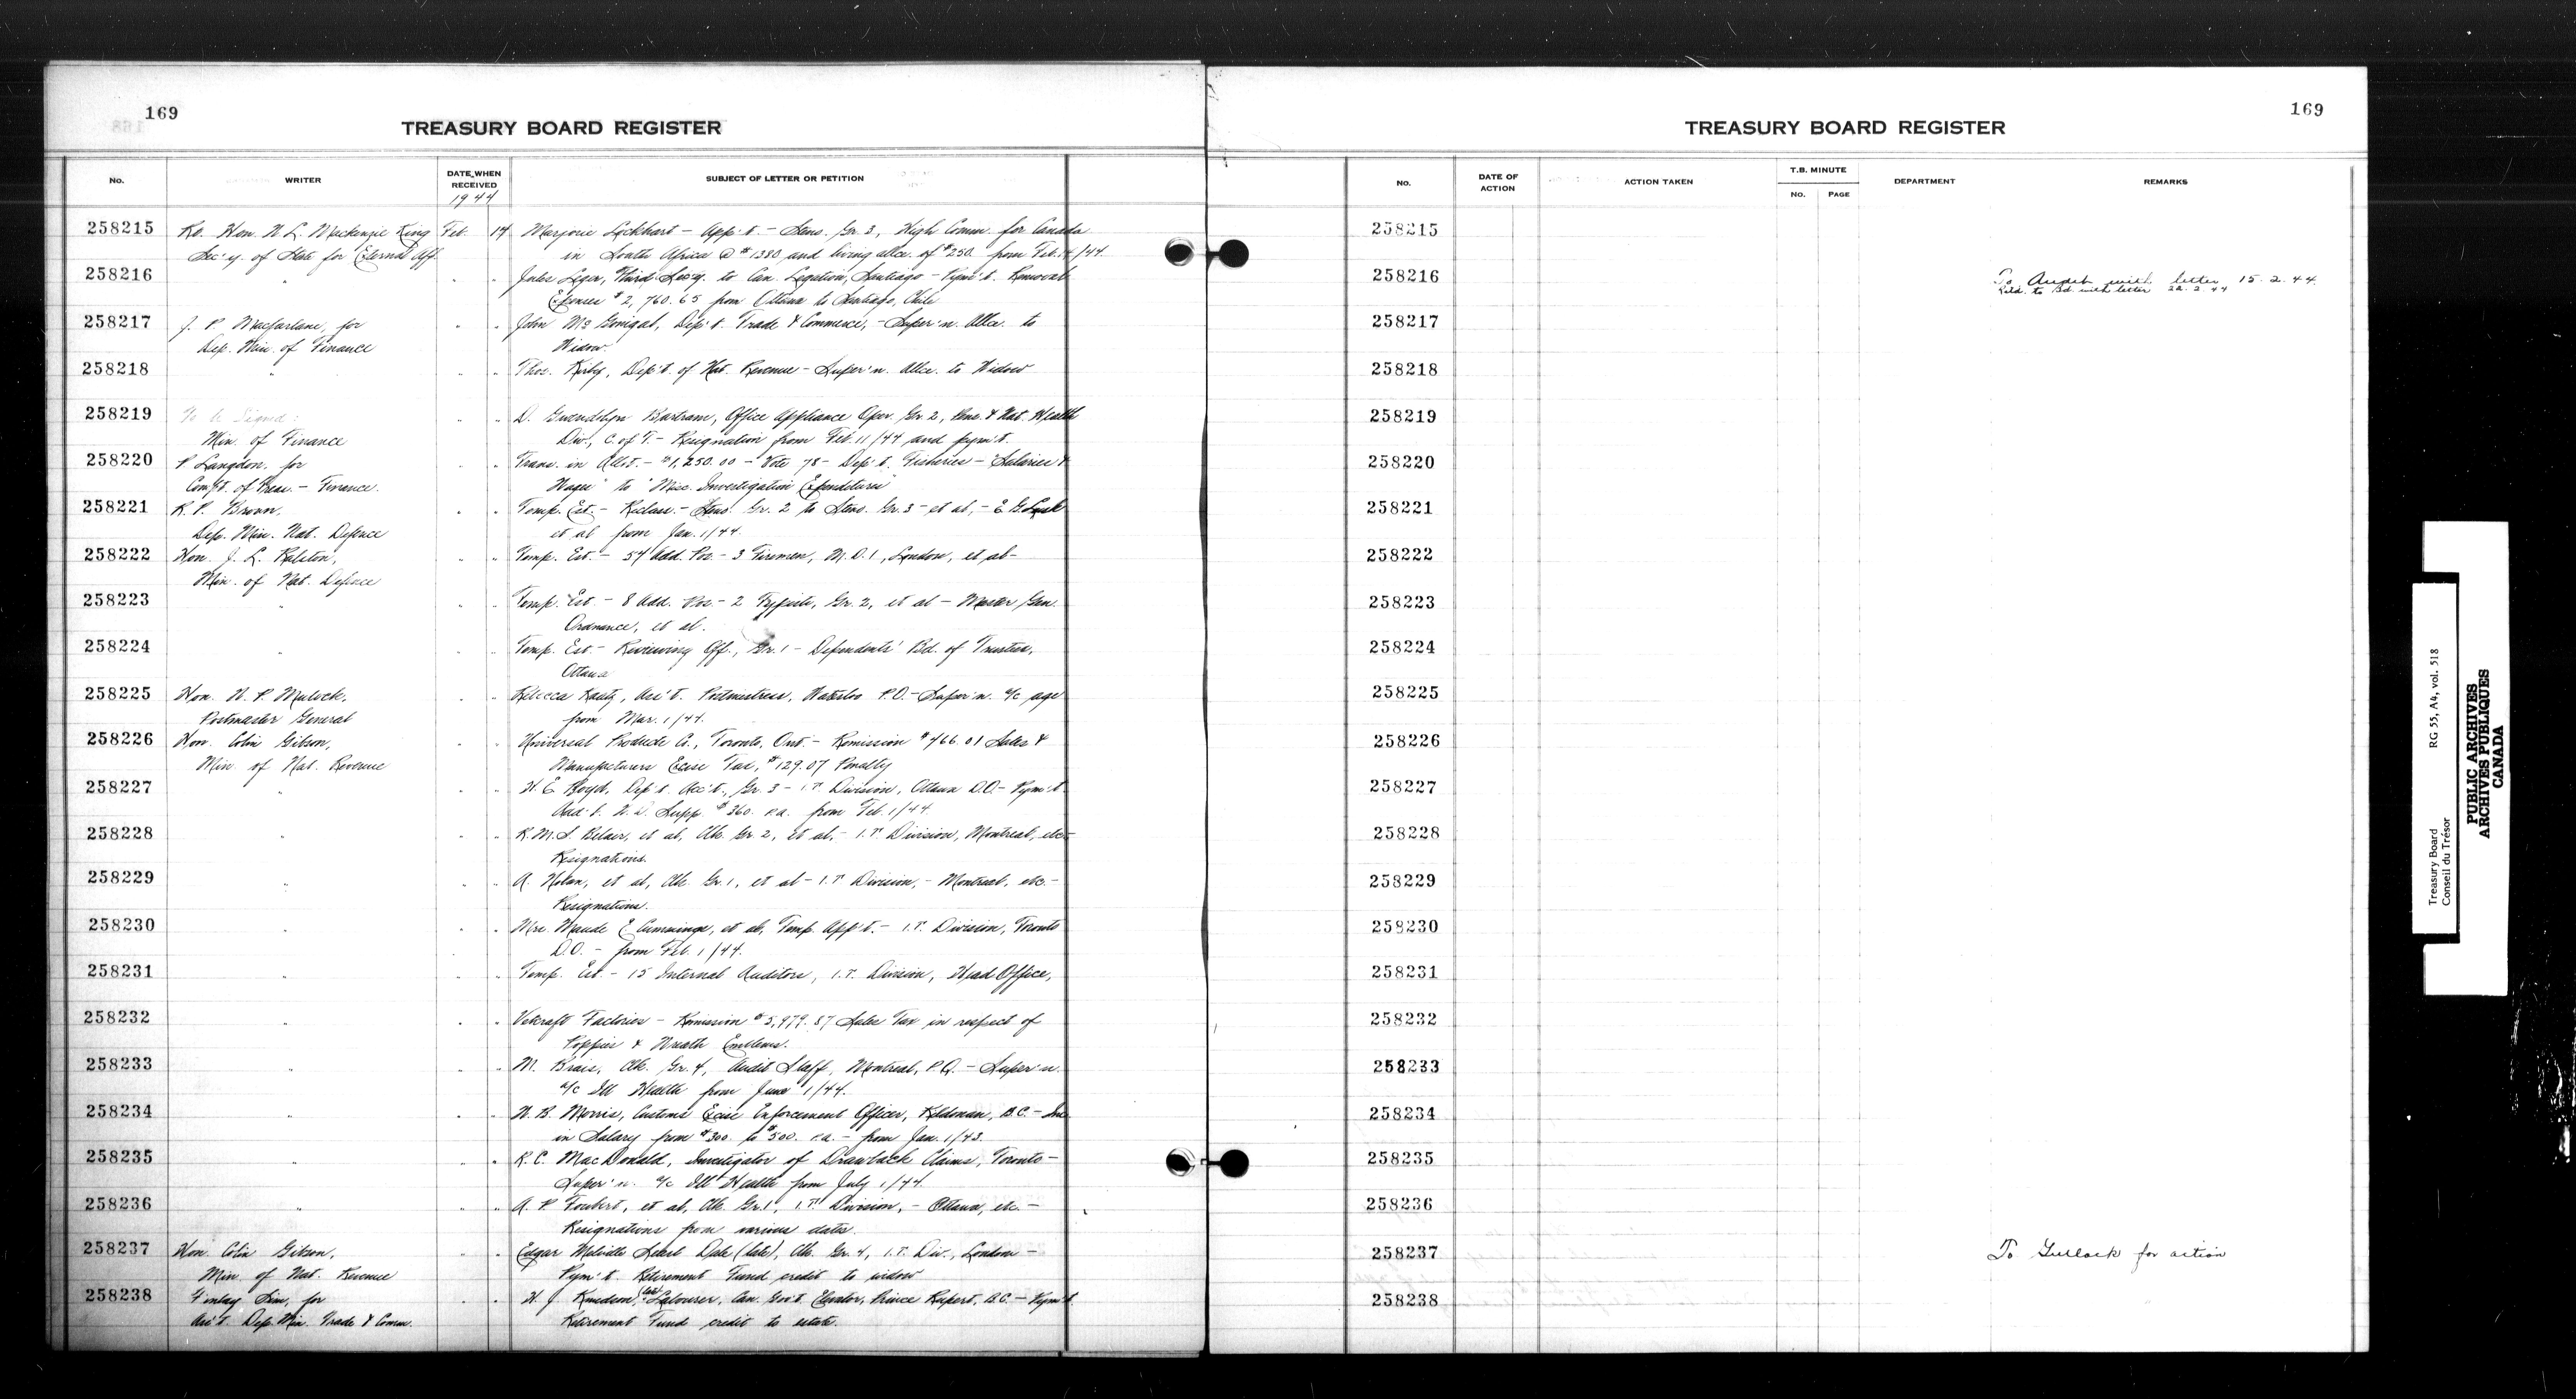 169
TREASURY BOARD REGISTER
No.
WRITER
DATE WHEN RECEIVED
1944
SUBJECT OF LETTER OR PETITION
258215 Rt. Hon. W. L. Mackenzie King Feb. 14 Marjorie Lockhart - App't. - Steno. Gr. 3, High Comm. for Canada
Sec'y. of State for External Aff. in South Africa @ $1380 and living allce. of $250. from Feb. 14/44.
258216 " " " Jules Leger, Third Sec'y. to Can. Legation, Santiago - Pym't. Removal
Expenses $2,760.65 from Ottawa to Santiago, Chile
258217 J. P. Macfarlane, for " " John McGonigal, Dep't. Trade & Commerce, - Super'n. Allce. to
Dep. Min. of Finance Widow.
258218 " " " Thos. Kirby, Dep't. of Nat. Revenue - Super'n. Allce. to Widow
258219 " " D. Gwendolyn Bartram, Office Appliance Oper. Gr. 2, Pens. & Nat. Health
Min. of Finance Div., C. of T. - Resignation from Feb. 11/44 and pym't.
258220 P. Langdon, for " " Trans. in Allot. - $1,250.00 - Vote 78 - Dep't. Fisheries - "Salaries &
Comp't. of Treas. - Finance. Wages" to "Misc. Investigation Expenditures"
258221 K. P. Brown, " " Temp. Est. - Reclass. - Steno. Gr. 2 to Steno. Gr. 3 - et al, - E. G.
Dep. Min. Nat. Defence et al from Jan. 1/44.
258222 Hon. J. L. Ralston, " " Temp. Est. - 54 Add. Pos. - 3 Firemen, M.D. 1, London, et al -
Min. of Nat. Defence
258223 " " " Temp. Est. - 8 Add. Pos. - 2 Typists, Gr. 2, et al - Master Gen.
Ordnance, et al.
258224 " " " Temp. Est. - Reviewing Off., Gr. 1 - Dependents' Bd. of Trustees,
Ottawa
258225 Hon. W. P. Mulock, " " Rebecca Kautz, Ass't. Postmistress, Waterloo P.O. - Super'n. a/c age
Postmaster General from Mar. 1/44.
258226 Hon. Colin Gibson, " " Universal Products Co., Toronto, Ont. - Remission $466.01 Sales &
Min. of Nat. Revenue Manufacturers Excise Tax, $129.07 Penalty
258227 " " " W. E. Boyd, Dep't. Acc't., Gr. 3 - I.T. Division, Ottawa D.O. - Pym't.
Add'l. W.D. Supp. $360. p.a. from Feb. 1/44.
258228 " " " R. M. S. Belair, et al, Clk. Gr. 2, et al, - I.T. Division, Montreal, etc. -
Resignations.
258229 " " " A. Nolan, et al, Clk. Gr. 1, et al - I.T. Division, - Montreal, etc. -
Resignations.
258230 " " " Mrs. Maude E. Cummings, et al, Temp. App't. - I.T. Division, Toronto
D.O. - from Feb. 1/44.
258231 " " " Temp. Est. - 15 Internal Auditors, I.T. Division, Head Office,
258232 " " " Vetcraft Factories - Remission $5,979.87 Sales Tax in respect of
Poppies & Wreath Emblems.
258233 " " " M. Brais, Clk. Gr. 4, Audit Staff, Montreal, P.Q. - Super'n.
a/c Ill Health from June 1/44.
258234 " " " W. B. Morris, Customs Excise Enforcement Officer, B.C. - Inc.
in Salary from $300. to $500. p.a. - from Jan. 1/43.
258235 " " " R. C. MacDonald, Investigator of Drawback Claims, Toronto -
Super'n. a/c Ill Health from July 1/44.
258236 " " " A. P. Foubert, et al, Clk. Gr. 1, I.T. Division, - Ottawa, etc. -
Resignations from various dates.
258237 Hon. Colin Gibson, " " Edgar Melville Dale (late), Clk. Gr. 4, I.T. Div., London -
Min. of Nat. Revenue Pym't. Retirement Fund credit to widow
258238 Finlay Sim, for " " W. J. Knudson, (late) Labourer, Can. Gov't. Elevator, Prince Rupert, B.C. - Pym't.
Ass't. Dep. Min. Trade & Comm. Retirement Fund credit to estate.
169
TREASURY BOARD REGISTER
No.
DATE OF ACTION
ACTION TAKEN
T.B. MINUTE
No.
PAGE
DEPARTMENT
REMARKS
258215
258216 To Audit with letter 15.2.44.
Retd. to Bd. with letter 22.2.44
258217
258218
258219
258220
258221
258222
258223
258224
258225
258226
258227
258228
258229
258230
258231
258232
258233
258234
258235
258236
258237 To Gullock for action
258238
Treasury Board
Conseil du Trésor
RG 55, A4, vol. 518
PUBLIC ARCHIVES
ARCHIVES PUBLIQUES
CANADA